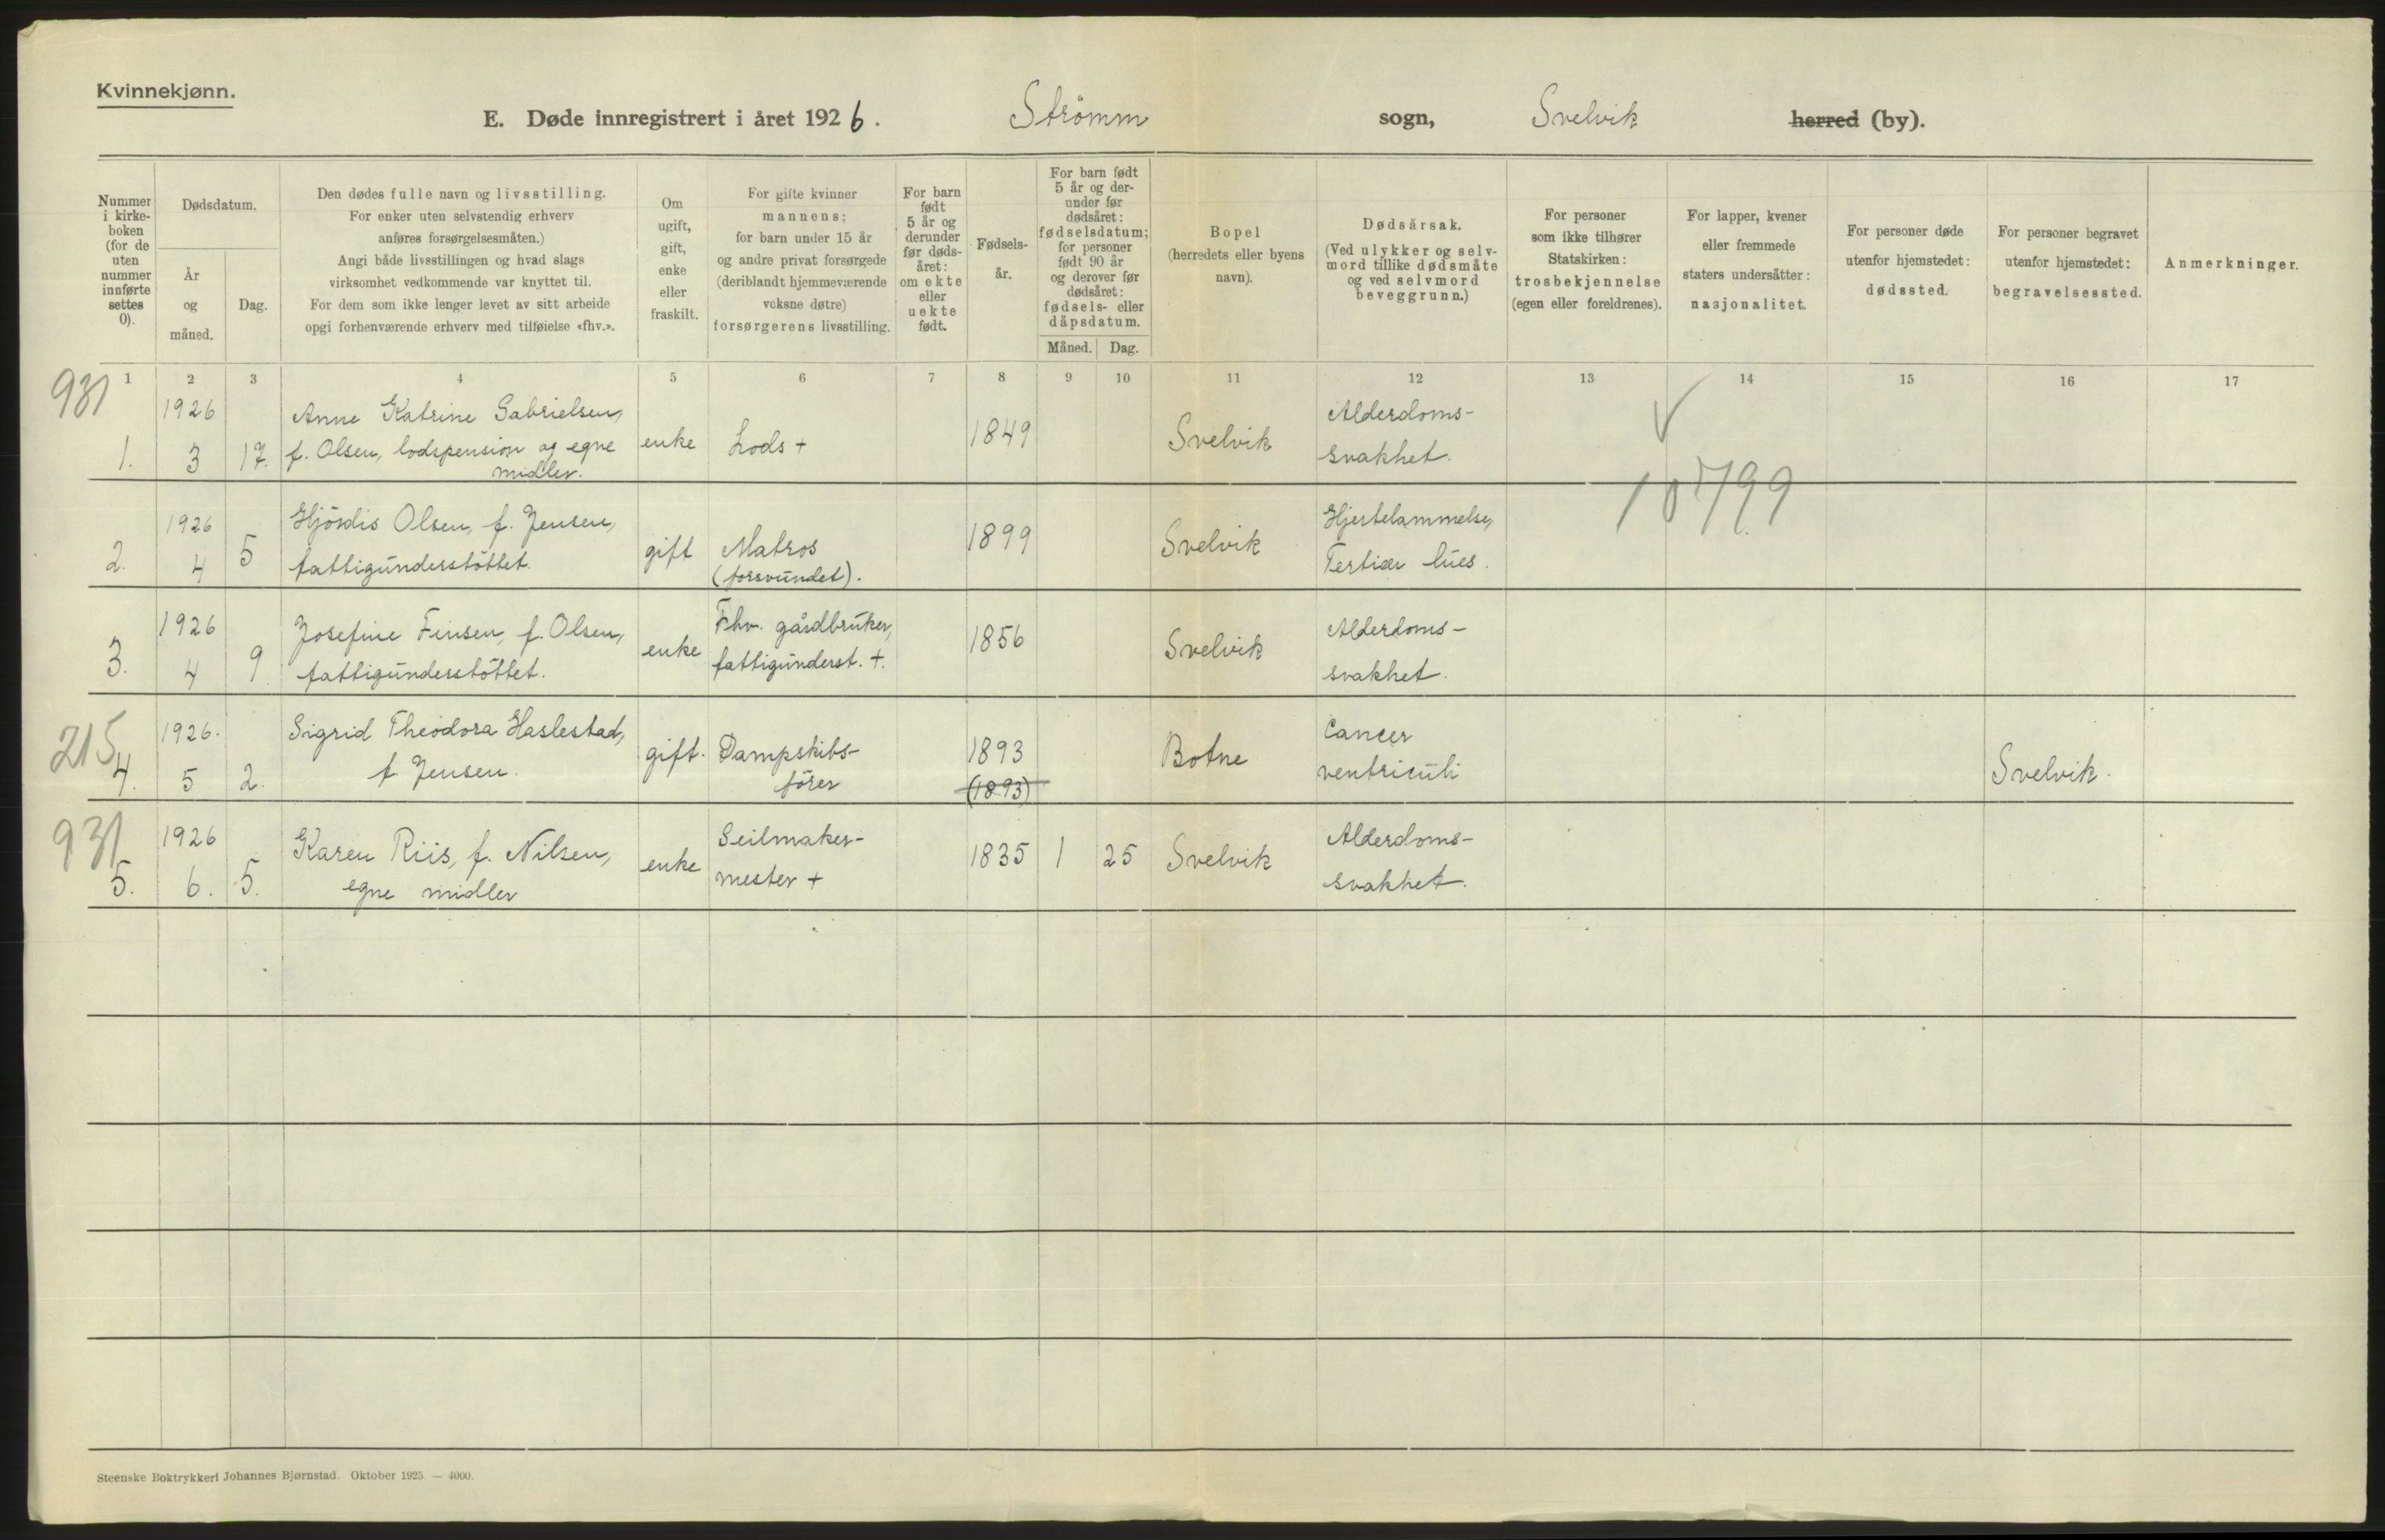 Kvinnekjønn.
E. Døde innregistrert i året 1926. Strömm sogn, Svelvik herred (by).
Nummer
i kirke-
boken
(for de
uten
nummer
innførte
settes
0).
Dødsdatum.
År
og
måned.
Dag.
Den dødes fulle navn og livsstilling.
For enker uten selvstendig erhverv
anføres forsørgelsesmåten.)
Angi både livsstillingen og hvad slags
virksomhet vedkommende var knyttet til.
For dem som ikke lenger levet av sitt arbeide
opgi forhenværende erhverv med tilføielse «fhv.».
Om
ugift,
gift,
enke
eller
fraskilt.
For gifte kvinner
mannens;
for barn under 15 år
og andre privat forsørgede
(deriblandt hjemmeværende
voksne døtre)
forsørgerens livsstilling.
For barn
født
5 år og
derunder
før døds-
året:
om ekte
eller
uekte
født.
Fødsels-
år.
For barn født
5 år og der-
under før
dødsåret:
fødselsdatum;
for personer
født 90 år
og derover før
dødsåret:
fødsels- eller
dåpsdatum.
Måned. Dag.
Bopel
(herredets eller byens
navn).
Dødsårsak.
(Ved ulykker og selv-
mord tillike dødsmåte
og ved selvmord
beveggrunn.)
For personer
som ikke tilhører
Statskirken:
trosbekjennelse
(egen eller foreldrenes).
For lapper, kvener
eller fremmede
staters undersåtter:
nasjonalitet.
For personer døde
utenfor hjemstedet:
dødssted.
For personer begravet
utenfor hjemstedet:
begravelsessted.
Anmerkninger.
1 2 3 4 5 6 7 8 9 10 11 12 13 14 15 16 17
931
1.
1926
3
17.
Anne Katrine Gabrielsen,
f. Olsen, lodspension og egne
midler.
enke
Lods +
1849
Svelvik
Alderdoms-
svakhet.
10799
2.
1926
4
5
Hjördis Olsen, f. Jensen,
fattigunderstöttet.
gift
Matros
(forsvundet).
1899
Svelvik
Hjertelammelse,
Tertiær lues.
3.
1926
4
9
Josefine Finsen, f. Olsen,
fattigunderstöttet.
enke
Fhv. gårdbruker,
fattigunderst. +.
1856
Svelvik
Alderdoms-
svakhet.
215
4.
1926.
5
2.
Sigrid Theodora Haslestad,
f. Jensen.
gift.
Dampskibs-
förer
1893
(1893)
Botne
Cancer
ventriculi
Svelvik.
931
5.
1926
6.
5.
Karen Riis, f. Nilsen,
egne midler
enke
Seilmaker-
mester +
1835
1
25
Svelvik
Alderdoms-
svakhet.
Steenske Boktrykkeri Johannes Bjørnstad. Oktober 1925. — 4000.